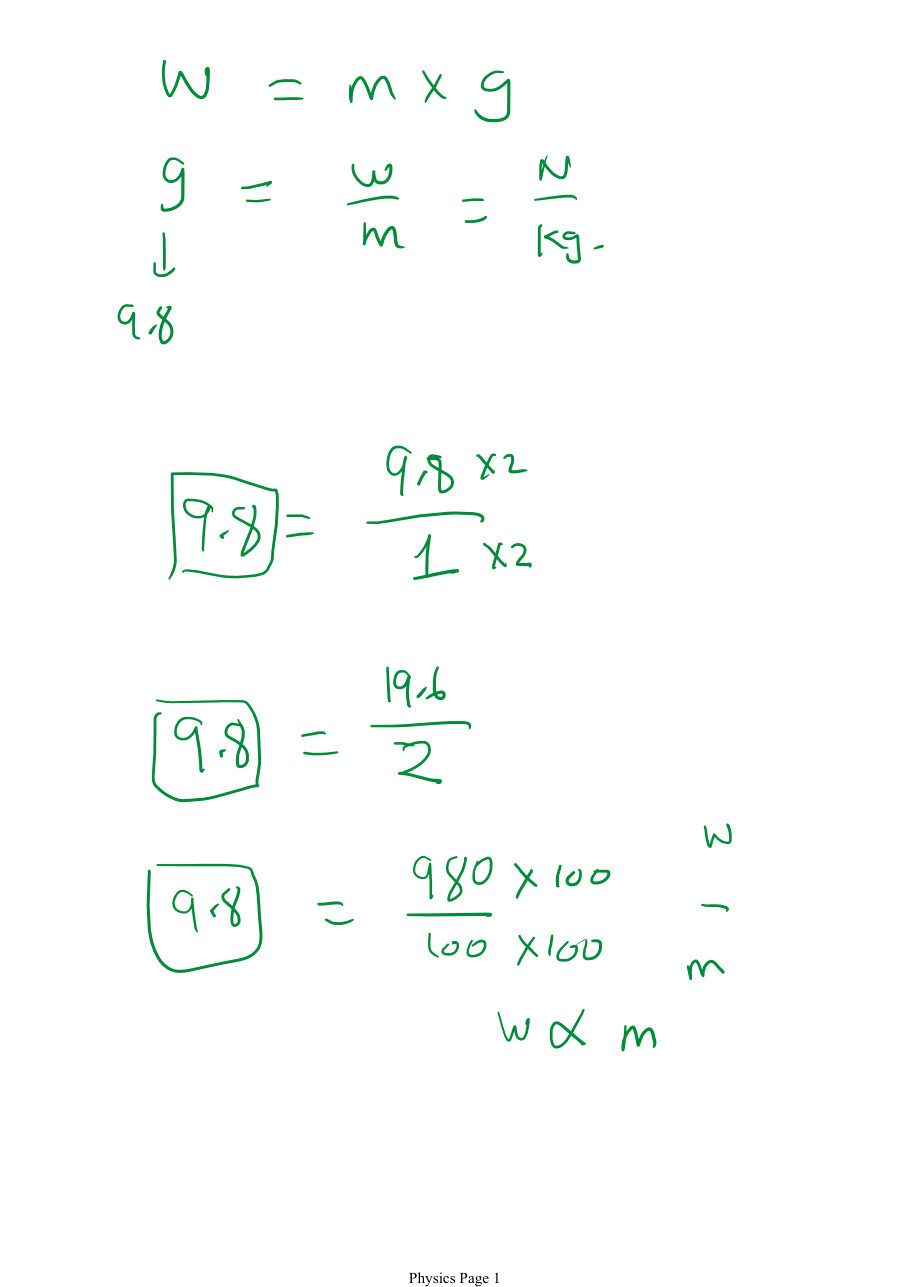 W = m × g
g = w/m = N/kg.
↓
9.8
9.8 = 9.8 ×2 / 1 ×2
9.8 = 19.6 / 2
9.8 = 980 × 100 / 100 × 100
w
–
m
W ∝ m
Physics Page 1